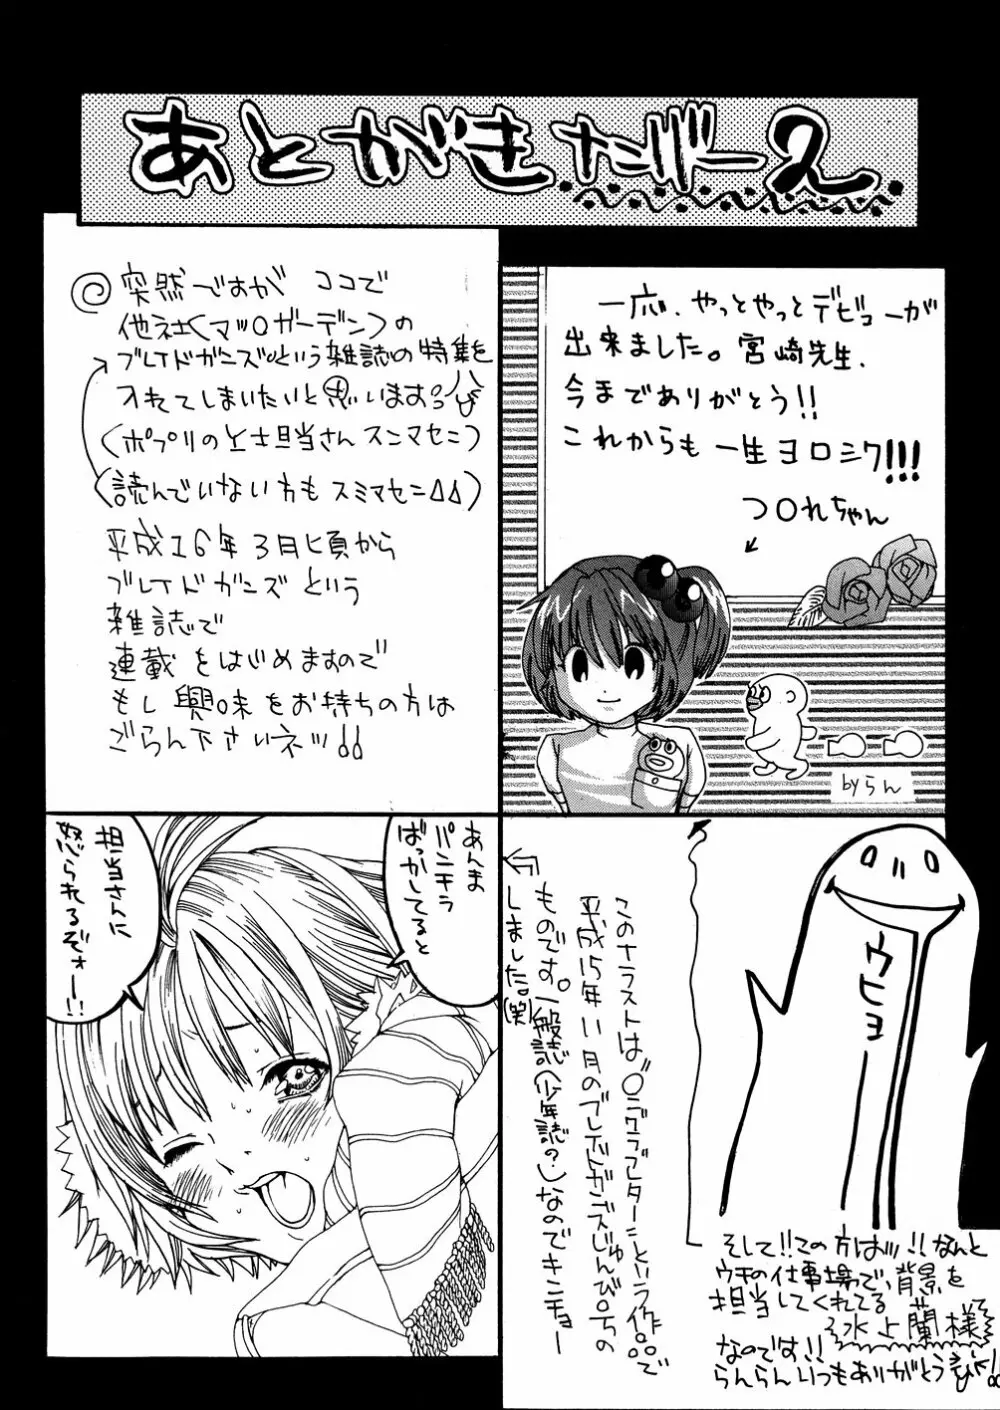 あとがきたいがー2
一応、やっとやっとデビューが
出来ました。宮崎先生、
今までありがとう!!
これからも一生ヨロシク!!!
つ〇れちゃん
byらん
突然ですが ココで
他社(マッ〇ガーデン)の
ブレイドガンズという雑誌の特集を
入れてしまいたいと思います
(ポプリの 担当さんスンマセン)
(読んでいない方もスミマセン)
平成16年3月頃から
ブレイドガンズ という
雑誌で
連載 をはじめますので
もし興味をお持ちの方は
ごらん下さいネッ
あんま
パンチラ
ばっかしてると
担当さんに
怒られるぞォー!!
このイラストは"
という作品で
平成15年11月のブレイドガンズじゅんび〇ちの
ものです。一般誌(少年誌?)なのでキンチョー
しました。(笑)
ウヒョ
そして!!この方はッ!!なんと
ウチの仕事場で、背景を
担当してくれてる
水上蘭様
なのです!!
らんらんいつもありがとう